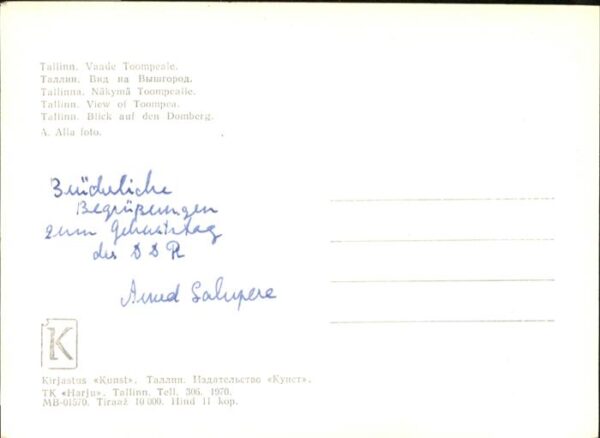 Tallinn. Vaade Toompeale.
Таллин. Вид на Вышгород.
Tallinna. Näkymä Toompealle.
Tallinn. View of Toompea.
Tallinn. Blick auf den Domberg.
A. Alla foto.
Brüderliche
Begrüßungen
zum Geburtstag
der DDR
Salupere
K
Kirjastus «Kunst», Таллин. Издательство «Кунст».
TK «Harju», Tallinn. Tell. 306. 1970.
MB-01570. Tiraaž 10 000. Hind 11 kop.